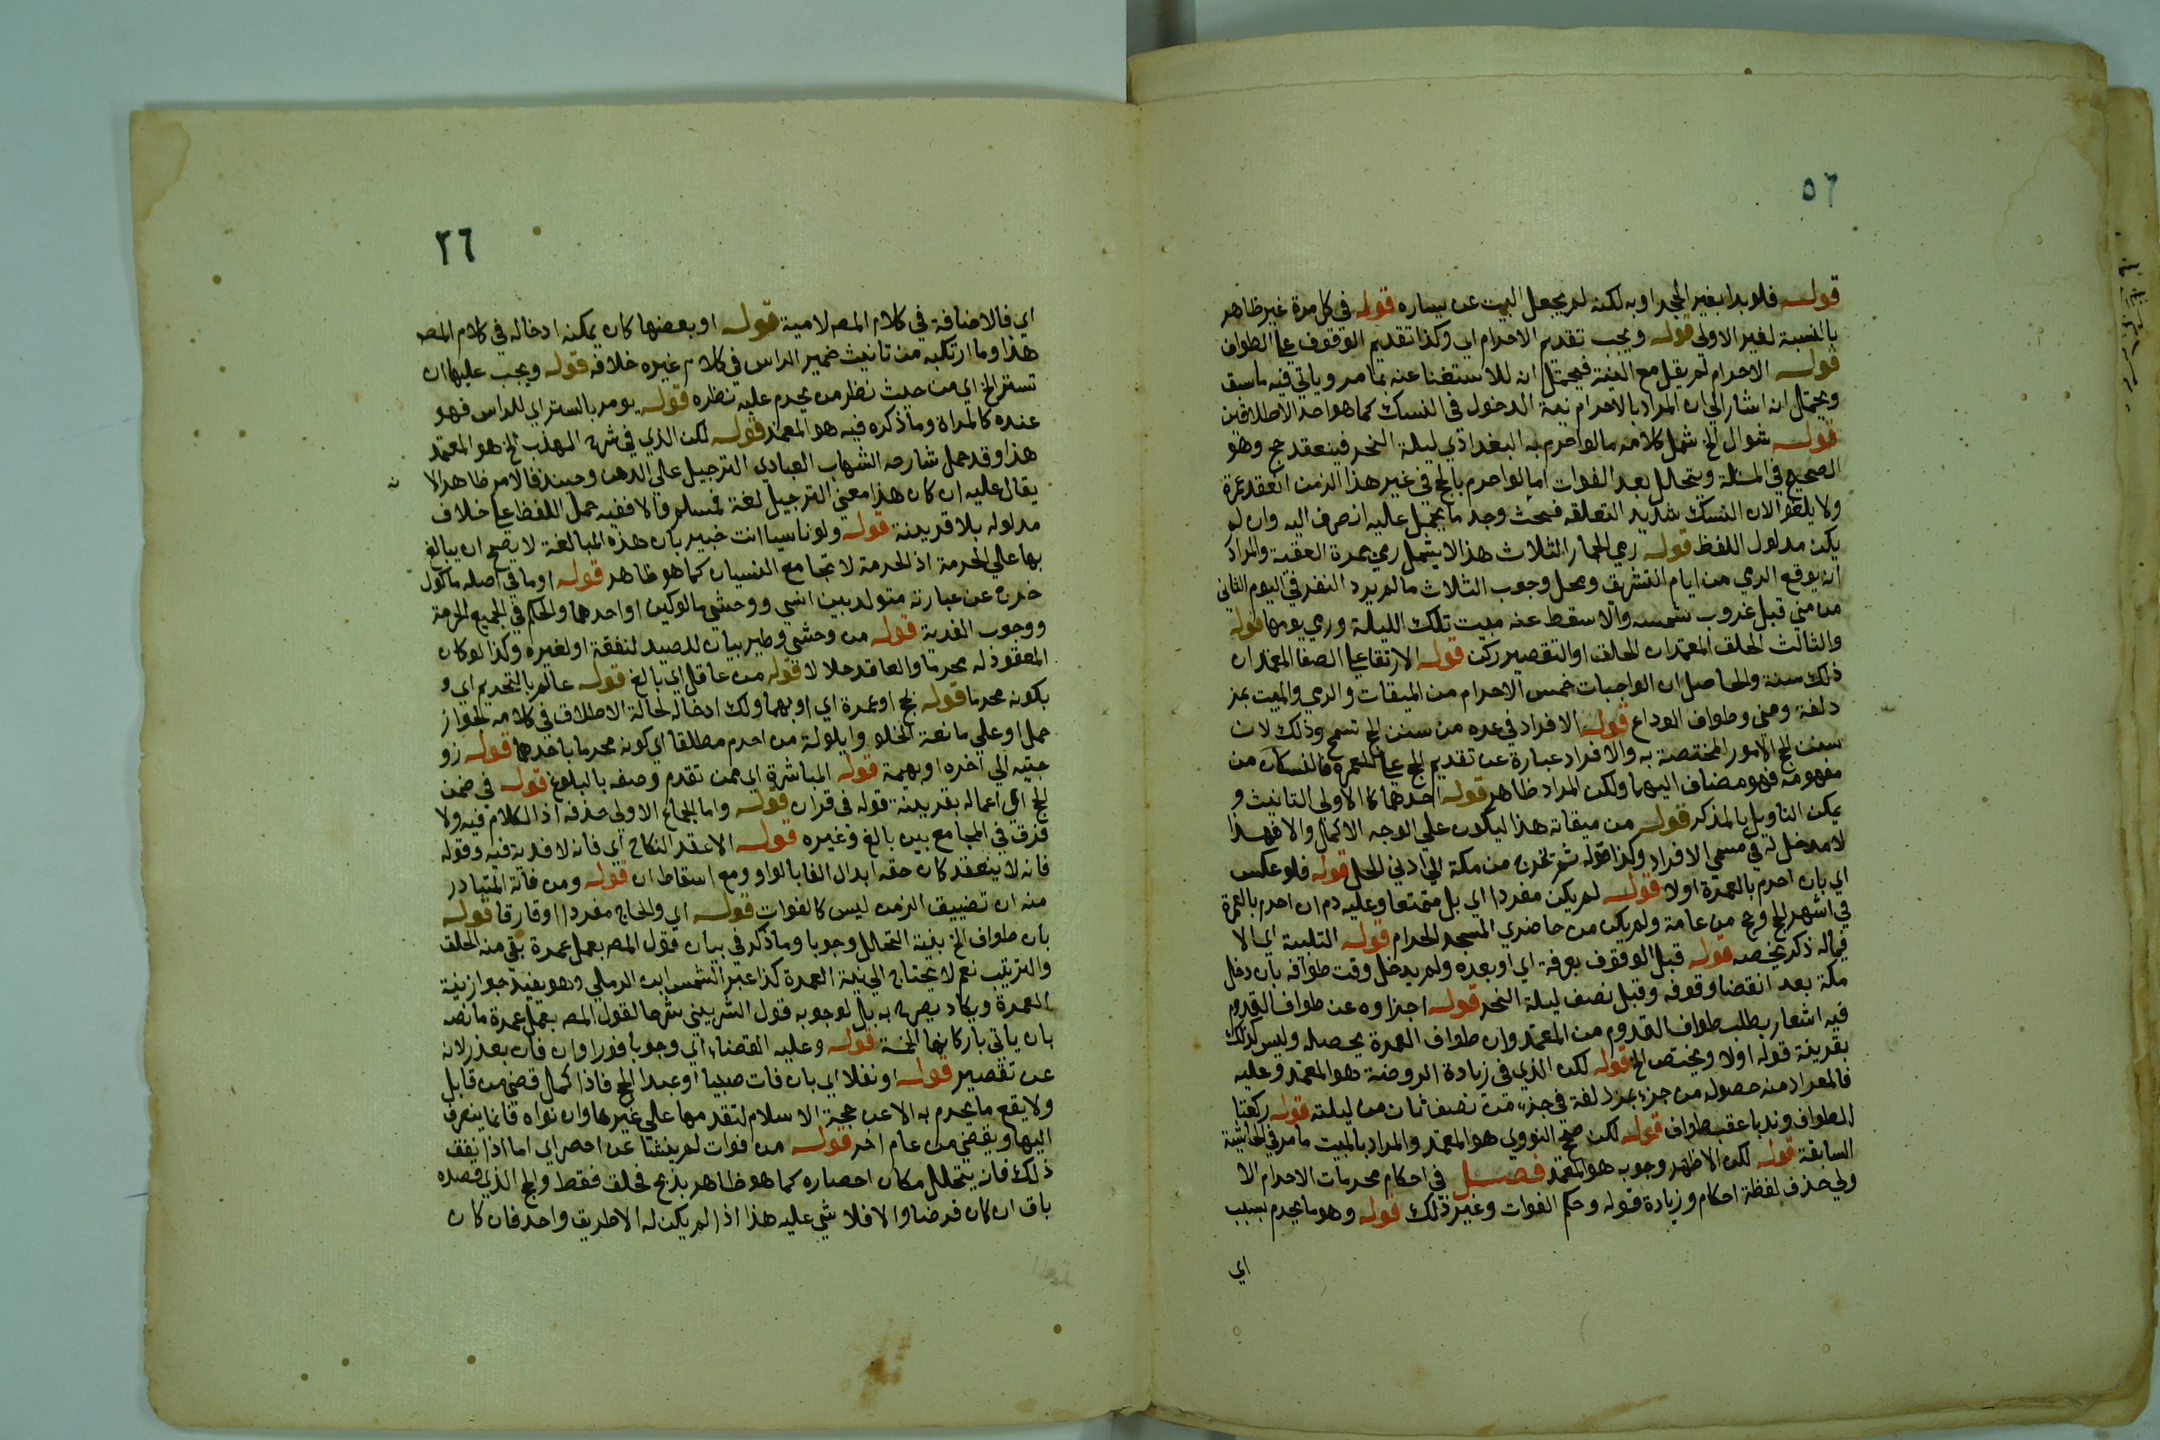 ٥٦
قوله فلو بدا بغير الحجر او به لكنه لم يجعل البيت عن يساره قوله في كل مرة غير ظاهر
بالنسبة لغير الاولى قوله ويجب تقديم الاحرام اي وكذا تقديم الوقوف على الطواف
قوله الاحرام لم يقل مع النية فيحتمل انه للاستغنا عنه بما مر وياتي فيه ما سبق
ويحتمل انه اشار الى ان المراد بالاحرام نية الدخول في النسك كما هو احد الاطلاقين
قوله شوال الخ شمل كلامه ما لو احرم به البغدادي ليلة النحر فينعقد حج وهو
الصحيح في المسئلة ويتحلل بعد الفوات اما لو احرم بالحج في غير هذا الزمن انعقد عمرة
ولا يلغو لان النسك شديد التعلقه فبحث وجد ما يحمل عليه انصرف اليه وان لم
يكن مدلول اللفظ قوله رمي الجمار الثلاث هذا لا يشمل رمي جمرة العقبة والمراد
انه يوقع الرمي من ايام التشريق ومحل وجوب الثلاث ما لم يرد النفر في اليوم الثاني
من منى قبل غروب شمسه والا سقط عنه مبيت تلك الليلة ورمي يومها قوله
والثالث الحلق المعتمد ان الحلق او التقصير ركن قوله الارتقا على الصفا المعتمد ان
ذلك سنة والحاصل ان الواجبات خمس الاحرام من الميقات والرمي والمبيت بمز
دلفة ومنى وطواف الوداع قوله الافراد في عده من سنن الحج تسمح وذلك لان
سنن الحج الامور المختصة به والافراد عبارة عن تقديم الحج على العمرة فالنسكان من
مفهومه فهو مضاف اليهما ولكن المراد ظاهر قوله احدهما كا الاولى التانيث و
يمكن التاويل بالمذكر قوله من ميقاته هذا ليكون على الوجه الاكمل والا فهذا
لا مدخل له في مسمى الافراد وكذا قوله ثم تخرج من مكة الى ادنى الحل قوله فلو عكس
اي بان احرم بالعمرة اولا قوله لم يكن مفردا اي بل متمتعا وعليه دم ان احرم بالعمرة
في اشهر الحج وحج من عامة ولم يكن من حاضري المسجد الحرام قوله التلبية اي الا
فيما له ذكر يخصه قوله قبل الوقوف بعرفة اي او بعده ولم يدخل وقت طوافه بان دخل
مكة بعد انقضا وقوفه وقبل نصف ليلة النحر قوله اجزاوه عن طواف القدوم
فيه اشعار بطلب طواف القدوم من المعتمر وان طواف العمرة يحصله وليس كذلك
بقرينة قوله اولا ويختص الخ قوله لكن الذي في زيادة الروضة هو المعتمد وعليه
فالمراد منه حصوله من جزء بمزدلفة في جزء من نصف ثان من ليلته قوله ركعتا
الطواف وندبا عقب طواف قوله لكن صحح النووي هو المعتمد والمراد بالمبيت ما مر في الحاشية
السابقة قوله لكن الاظهر وجوبه هو المعتمد فصل في احكام محرمات الاحرام الا
ولى حذف لفظة احكام وزيادة قوله وحكم الفوات وغير ذلك قوله وهو ما يحرم بسبب
اي
٢٦
اي فالاضافة في كلام المصـ لامية قوله او بعضها كان يمكنه ادخاله في كلام المصـ
هذا وما ارتكبه من تانيث ضمير الراس في كلام غيره خلافه قوله ويجب عليها ان
تستر الخ اي من حيث نظر من يحرم عليه نظره قوله يومر بالستر اي للراس فهو
عنده كالمراة وما ذكره فيه هو المعتمد قوله لكن الذي في شرح المهذب الخ هو المعتمد
هذا وقد حمل شارحه الشهاب العبادي الترجيل على الدهن وحينئذ فالامر ظاهر الا
يقال عليه ان كان هذا معنى الترجيل لغة فمسلم والا ففيه حمل اللفظ على خلاف
مدلوله بلا قرينة قوله ولو ناسيا انت خبير بان هذه المبالغة لا يصح ان يبالغ
بها على الحرمة اذ الحرمة لا تجامع النسيان كما هو ظاهر قوله او ما في اصله ماكول
خرج عن عبارته متولد بين انسي ووحشي مالوكين او احدهما والحكم في الجميع الحرمة
ووجوب الفدية قوله من وحشي وطير بيان للصيد لنفقة او لغيره وكذا لو كان
المعقود له محرما والعاقد حلالا قوله من عاقل اي بالغ قوله عالم بالتحريم اي و
بكونه محرما قوله بحج او عمرة اي او بهما ولك ادخاله لحالة الاطلاق في كلامه لجواز
حمل او على مانعة الخلو وايلولة من احرم مطلقا اي كونه محرما باحدهما قوله زو
جتيه الى آخره او بهيمة قوله المباشرة اي ممن تقدم وصفه بالبلوغ قوله في ضمن
الحج اي اعماله بقرينة قوله في قران قوله واما الجماع الاولى حذفه اذ الكلام فيه ولا
فرق في المجامع بين بالغ وغيره قوله الا عقد النكاح اي فانه لا فدية فيه وقوله
فانه لا ينعقد كان حقه ابدال الفا بالواو ومع اسقاط ان قوله ومن فاته المتبادر
منه ان تضييق الزمن ليس كالفوات قوله اي والحاج مفردا او قارنا قوله
بان طواف الخ بنية التحلل وجوبا وما ذكر في بيان قول المصـ بعمل عمرة بقي منه الحلق
والترتيب نعم لا يحتاج الى نية العمرة كذا عبر الشمس ابن الرملي وهو يفيد جواز نية
العمرة ويكاد يصرح به بل لوجوبه قول الشربيني شرحا لقول المصـ بعمل عمرة ما نصه
بان ياتي باركانها الخمسة قوله وعليه القضاء اي وجوبا فورا وان فات بعذر لانه
عن تقصير قوله او نفلا اي بان فات صبيا او عبدا الحج فاذا كمل قضى من قابل
ولا يقع ما يحرم به الا عن حجة الاسلام لتقدمها على غيرها وان نواه فانما ينصرف
اليها ويقضي من عام اخر قوله من فوات لم ينشا عن احصر اي اما اذا نفق
ذلك فانه يتحلل مكان احصاره كما هو ظاهر بذبح فحلق فقط والحج الذي قصده
باق ان كان فرضا والا فلا شي عليه هذا اذا لم يكن له الا طريق واحد فان كان